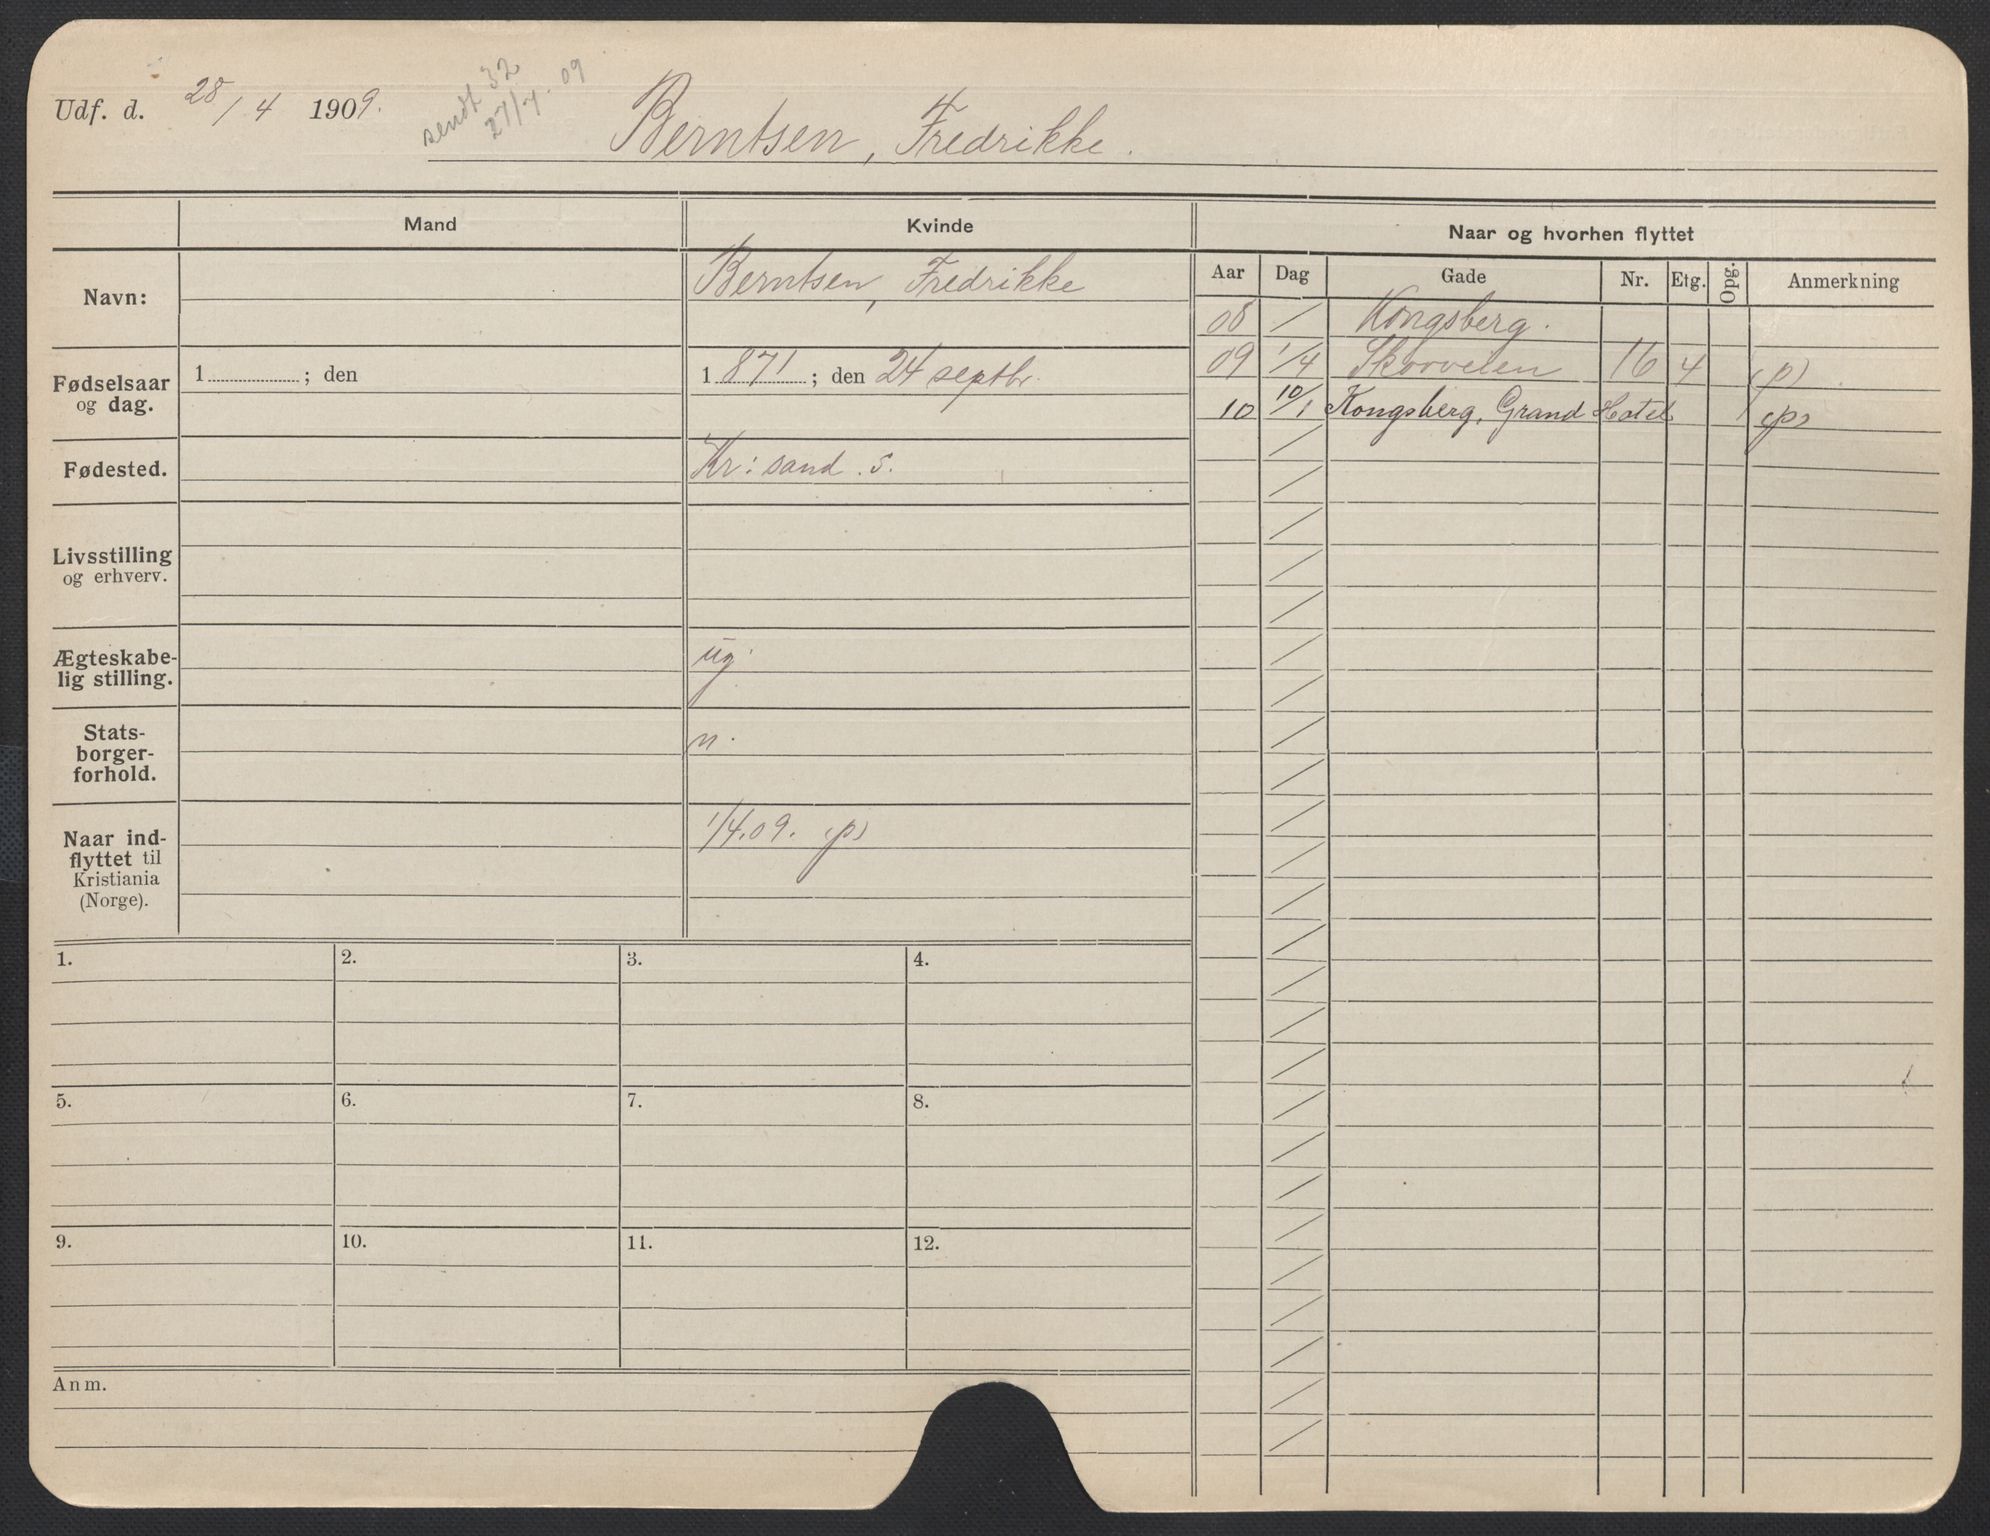 Udf. d. 28/4 1909.
sendt 32
27/7.09
Berntsen, Fredrikke.
Mand
Kvinde
Naar og hvorhen flyttet
Aar Dag Gade Nr. Etg. Opg. Anmerkning
Navn:
Berntsen, Fredrikke
08 / Kongsberg.
09 1/4 16 4 (p)
10 10/1 Kongsberg, Grand Hotel (p)
Fødselsaar
og dag.
1 ; den
1871 ; den 24 septbr.
Fødested.
Kr: sand. s.
Livsstilling
og erhverv.
Ægteskabe-
lig stilling.
ug.
Stats-
borger-
forhold.
n.
Naar ind-
flyttet til
Kristiania
(Norge).
1/4.09. (p)
1. 2. 3. 4.
5. 6. 7. 8.
9. 10. 11. 12.
Anm.